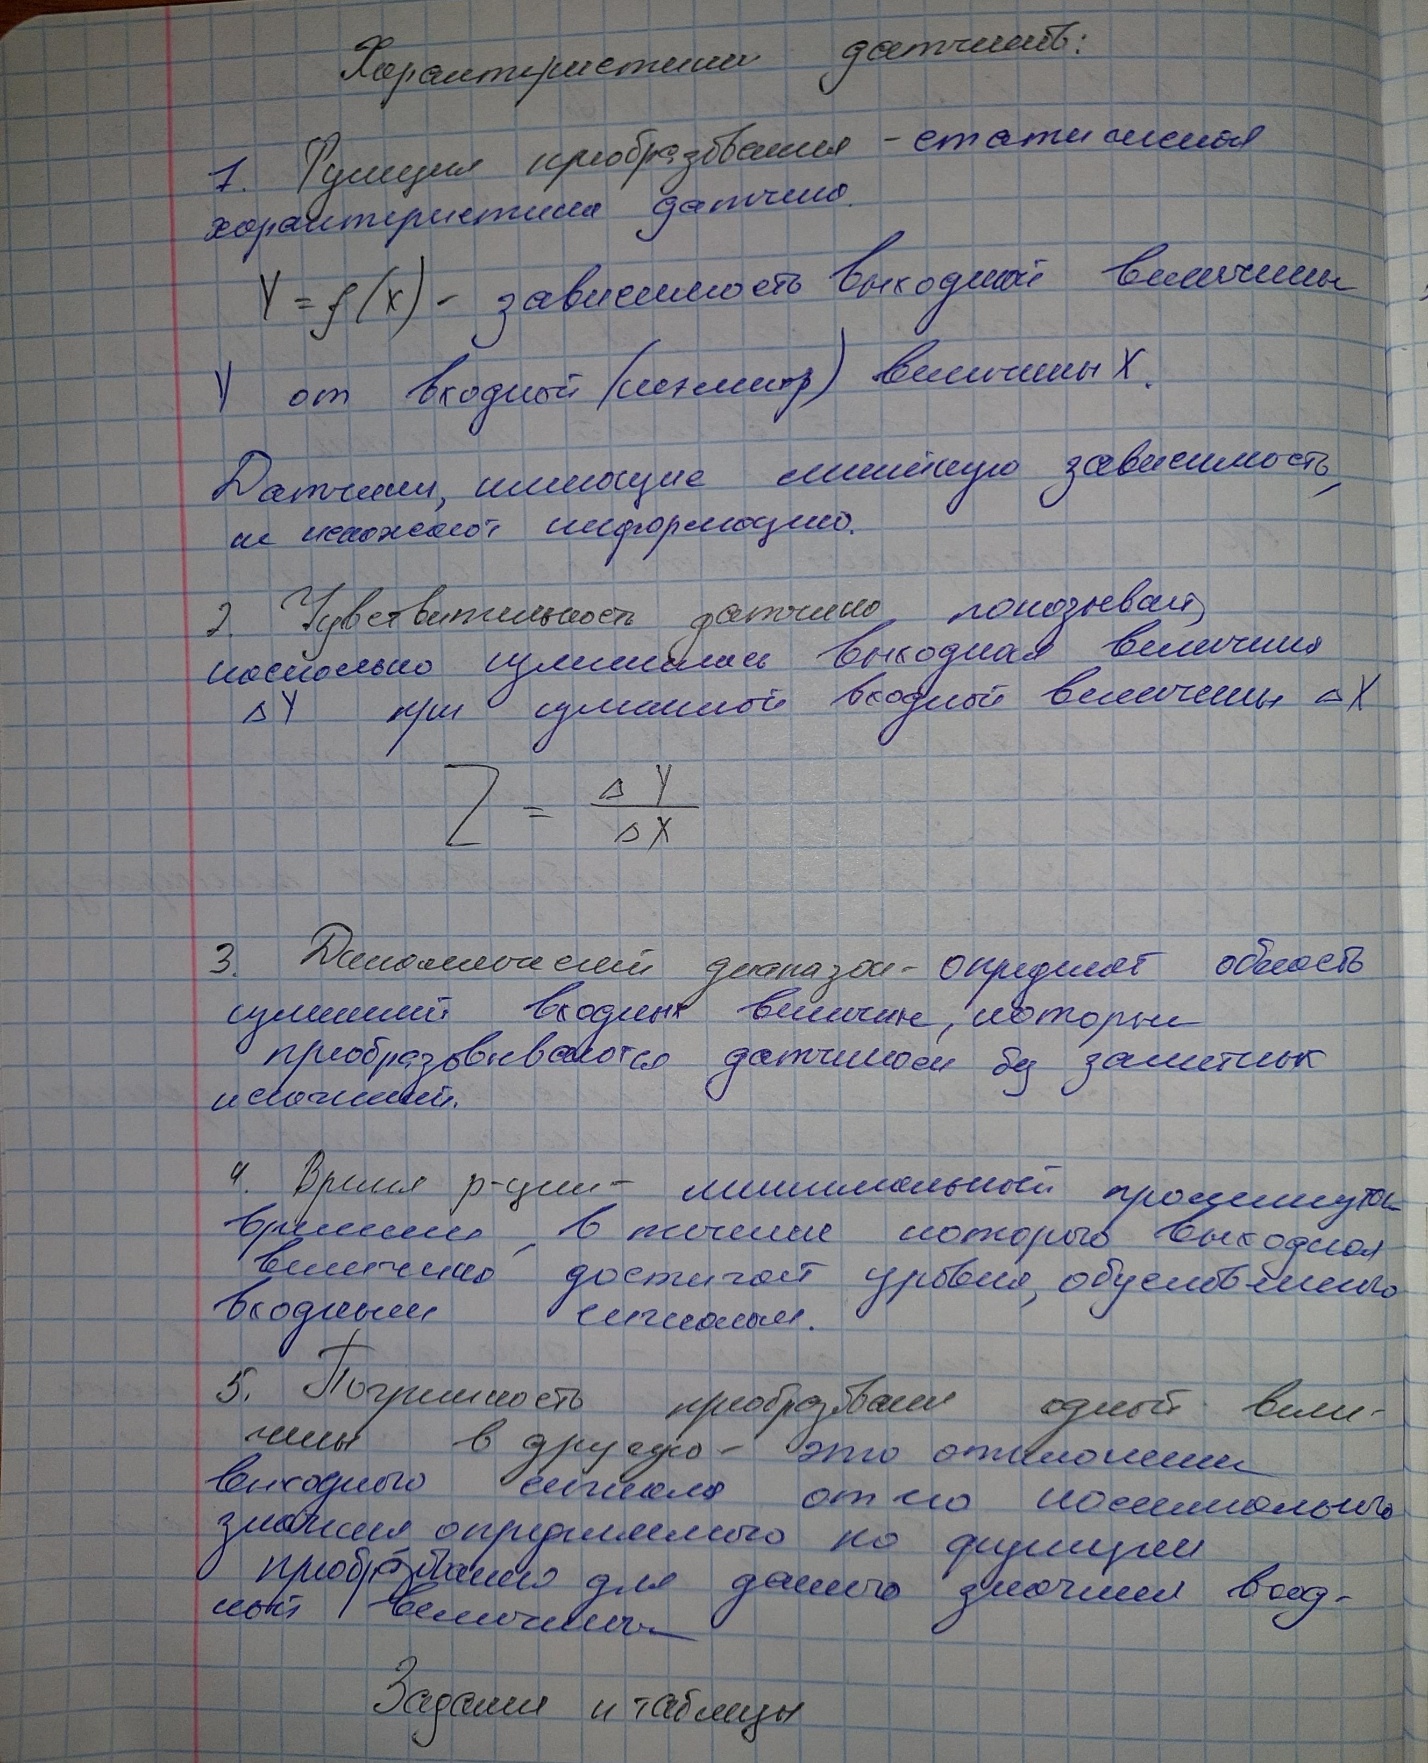 Характеристики датчиков:
1. Функция преобразования - статическая
характеристика датчика.
Y = f(x) - зависимость выходной величины
Y от входной (измеир) величины X.
Датчики, имеющие линейную зависимость,
не искажают информацию.
2. Чувствительность датчика показывает,
насколько изменилась выходная величина
ΔY при изменении входной величины ΔX
Z = ΔY / ΔX
3. Динамический диапазон - определяет область
изменений входных величин, которые
преобразовываются датчиком без заметных
искажений.
4. Время р-ции - минимальный промежуток
времени, в течение которого выходная
величина достигает уровня, обусловленного
входным сигналом.
5. Погрешность преобразования одной вели-
чины в другую - это отклонение
выходного сигнала от его номинального
значения определяемого по функции
преобразования для данного значения вход-
ной величины
Задания и таблицы